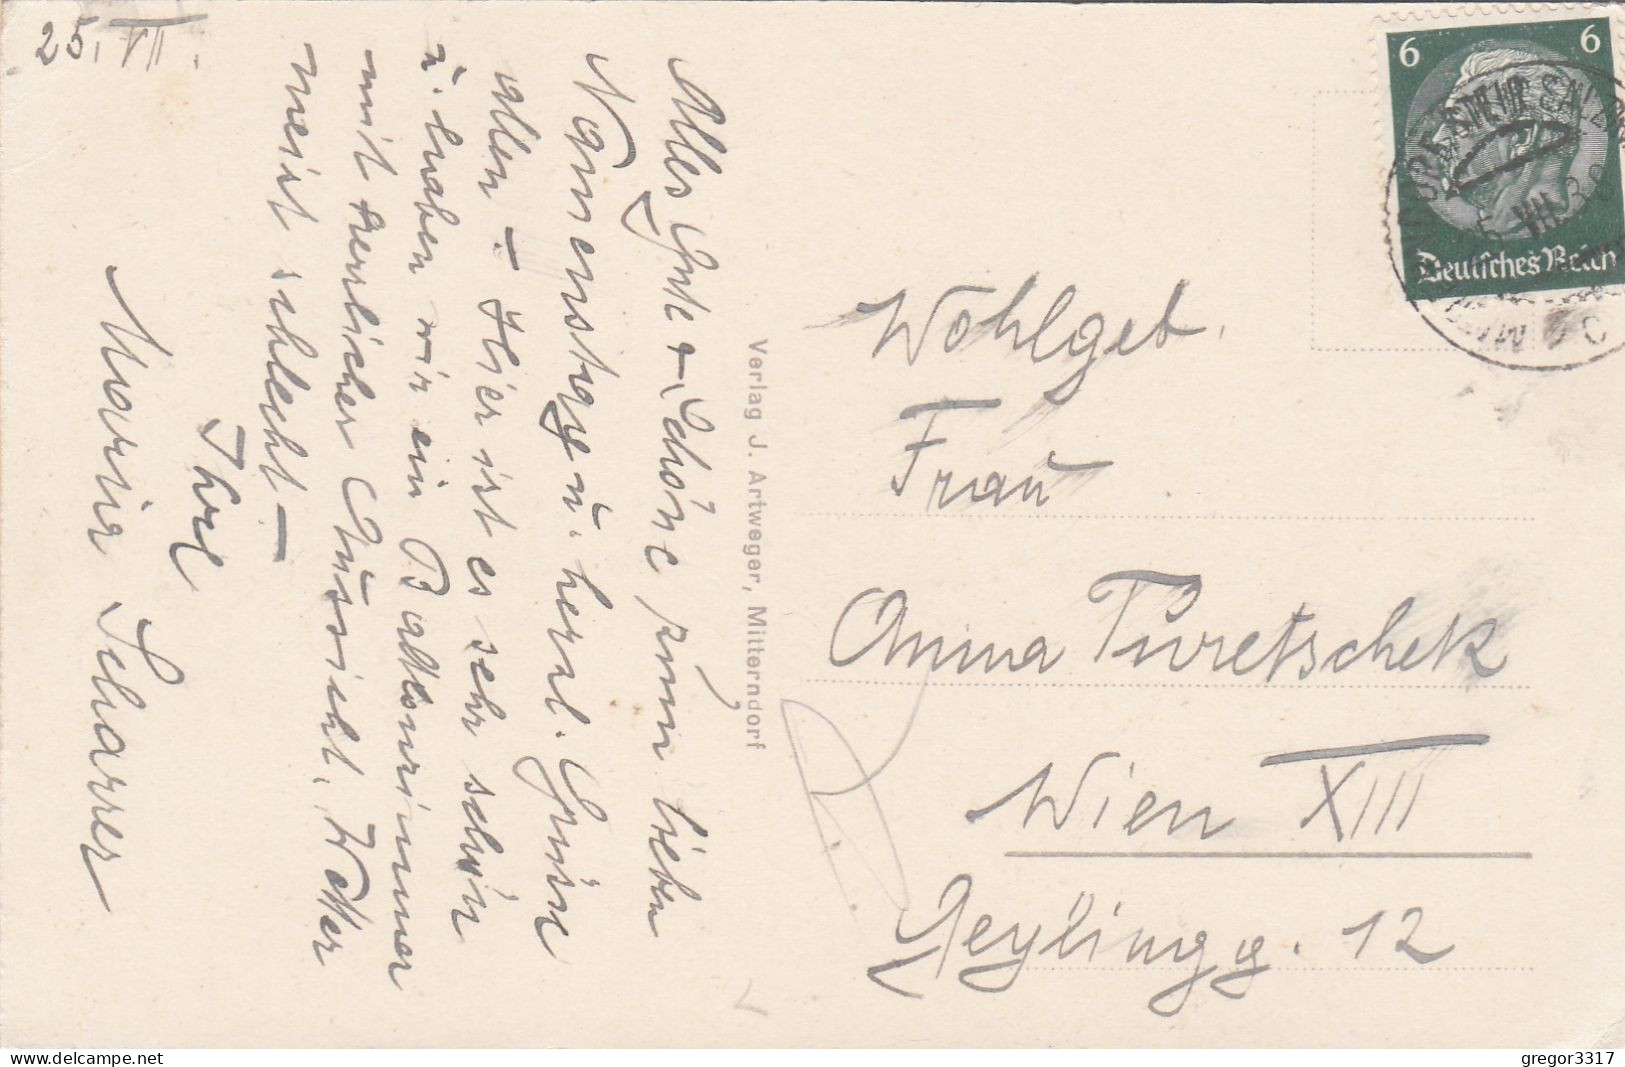 25. VII.
Alles Gute & Schöne zum lieben
Namenstag u. herzl. Grüsse
allen – Hier ist es sehr schön
u. haben wir ein Balkonzimmer
mit herrlicher Aussicht. Wetter
meist schlecht –
Ihre
Maria Scharrer
Verlag J. Artweger, Mitterndorf
6 6
Deutsches Reich
VII
Wohlgeb.
Frau
Anna Turetschek
Wien XIII
g. 12
gregor3317